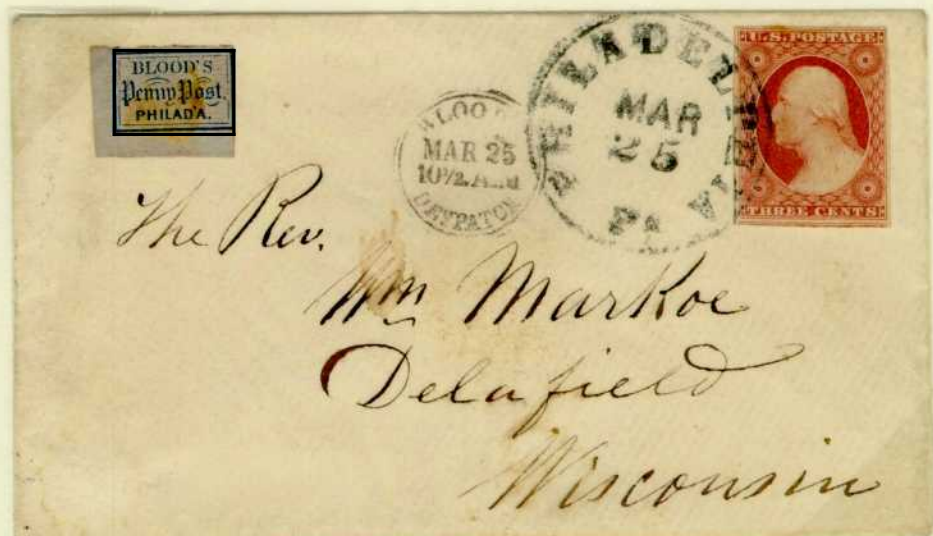 BLOOD'S
Penny Post.
PHILAD'A.
BLOOD'S
MAR 25
10½ A.M
DESPATCH
PHILADELPHIA
MAR
25
PA
U.S. POSTAGE
THREE CENTS
The Rev.
Wm Markoe
Delafield
Wisconsin